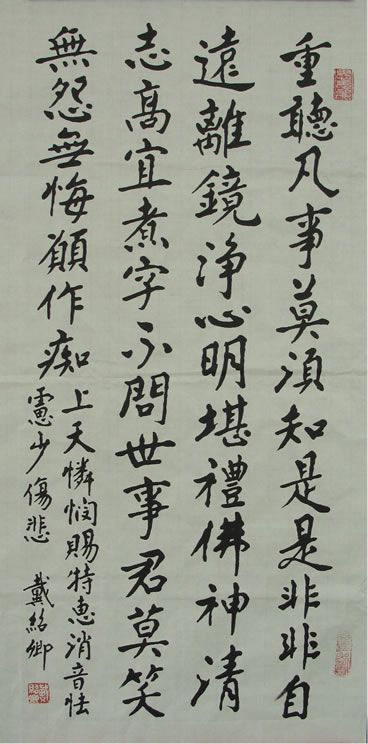 重聽凡事莫須知是是非非自
遠離鏡淨心明堪禮佛神清
志高宜煮字不問世事君莫笑
無怨無悔願作痴
上天憐憫賜特惠消音怯
慮少傷悲 戴紹卿